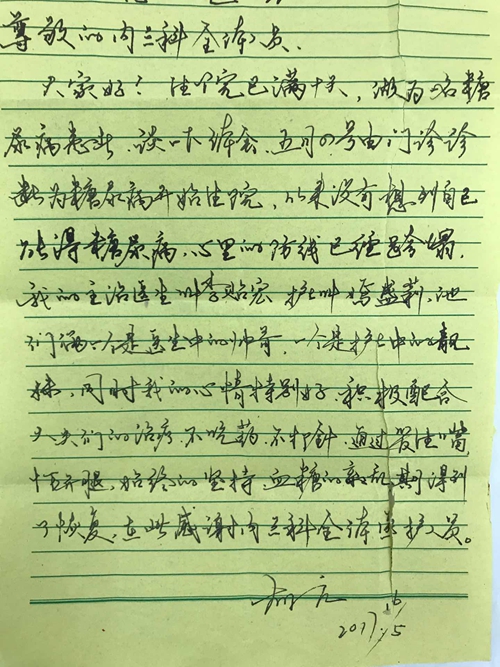 尊敬的内三科全体人员.
大家好！住院已满十天，做为一名糖
尿病患者.谈一下体会.五月四号由门诊诊
断为糖尿病开始住院，从来没有想到自己
能得糖尿病.心里的防线已经垮塌.
我的主治医生叫李贻宏 护士叫 盛莉.他
们俩一个是医生中的帅哥.一个是护士中的靓
妹，同时我的心情特别好.积极配合
大夫们的治疗.不吃药.不打针.通过 管
住 开腿.始终的坚持.血糖的 得到
了恢复.在此感谢内三科全体医护人员。
2017.5
16